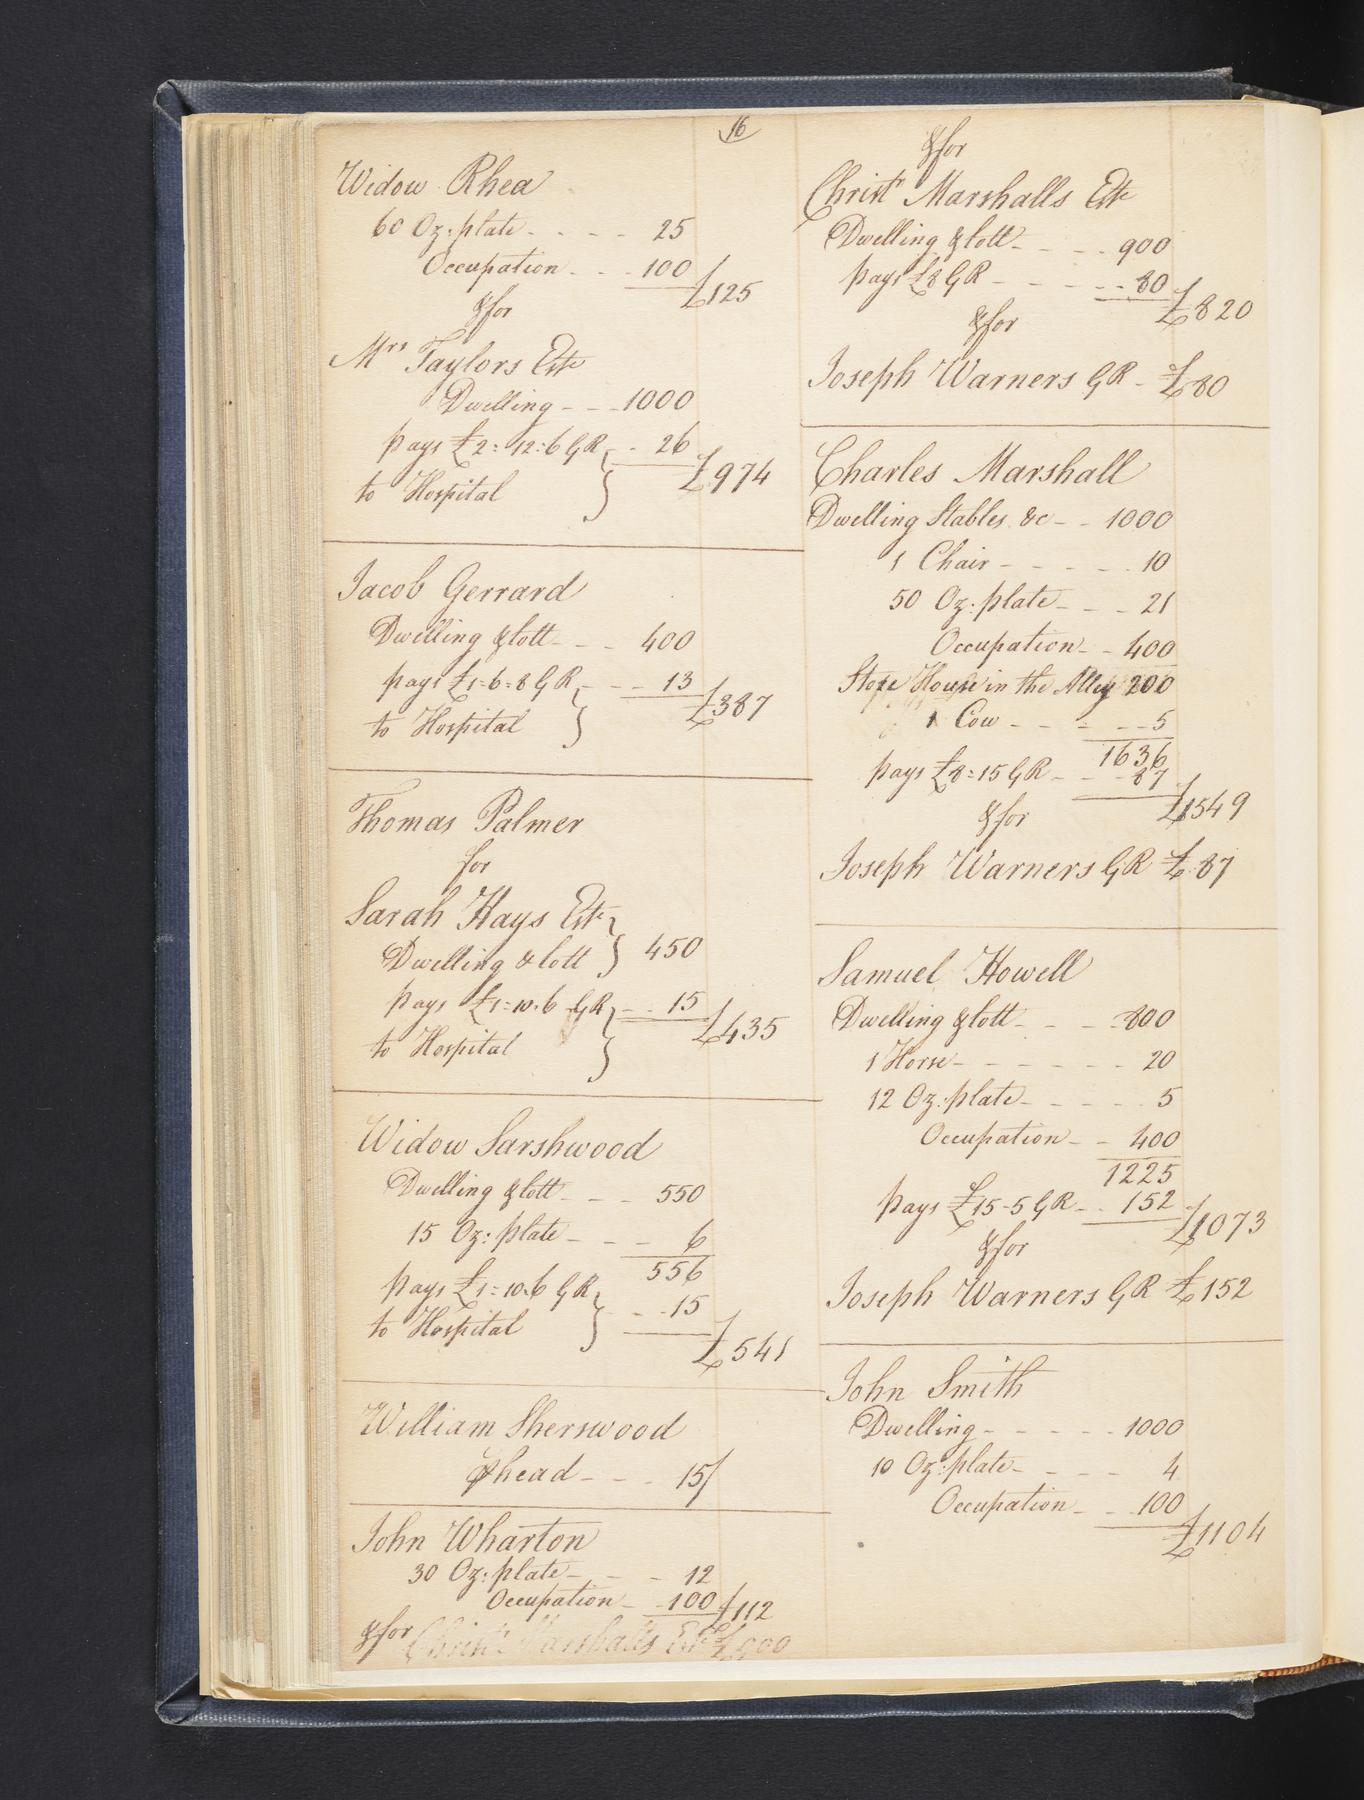 16
Widow Rhea
60 Oz: plate - - - - 25
Occupation - - - 100
£125
&for
Mrs Taylors Este
Dwelling - - - 1000
pays £2=12=6 GR - - 26
to Hospital
£974
Jacob Gerrard
Dwelling & lott - - - 400
pays £1=6=8 GR - - - 13
to Hospital
£387
Thomas Palmer
for
Sarah Hays Este
Dwelling & lott 450
pays £1=10=6 GR - - - 15
to Hospital
£435
Widow Sarshwood
Dwelling & lott - - - 550
15 Oz: plate - - - 6
556
pays £1=10=6 GR
to Hospital - - - 15
£541
William Sherswood
head - - - 15/
John Wharton
30 Oz: plate - - - - 12
Occupation - - 100
£112
&for Christr Marshalls Este £900
&for
Christr Marshalls Este
Dwelling & lott - - - - 900
pays £8 GR - - - - - - 80
£820
&for
Joseph Warners GR - £80
Charles Marshall
Dwelling Stables &c - - 1000
1 Chair - - - - - - 10
50 Oz: plate - - - - 21
Occupation - - 400
Store House in the Alley 200
1 Cow - - - - - - 5
1636
pays £8=15 GR - - - 87
£1549
&for
Joseph Warners GR £87
Samuel Howell
Dwelling & lott - - - - 800
1 Horse - - - - - - - 20
12 Oz: plate - - - - - 5
Occupation - - 400
1225
pays £15-5 GR - - 152
£1073
&for
Joseph Warners GR £152
John Smith
Dwelling - - - - - 1000
10 Oz: plate - - - - 4
Occupation - - - 100
£1104